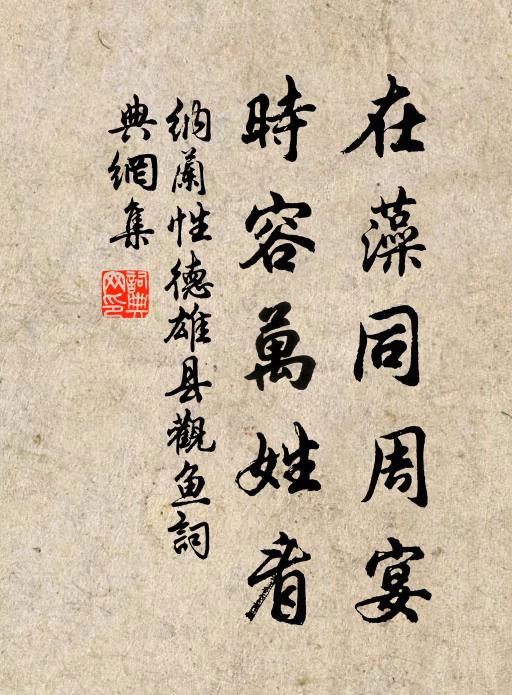 在藻同周宴
時容萬姓看
纳蘭性德雄县觀鱼詞
典網集
詞典網印